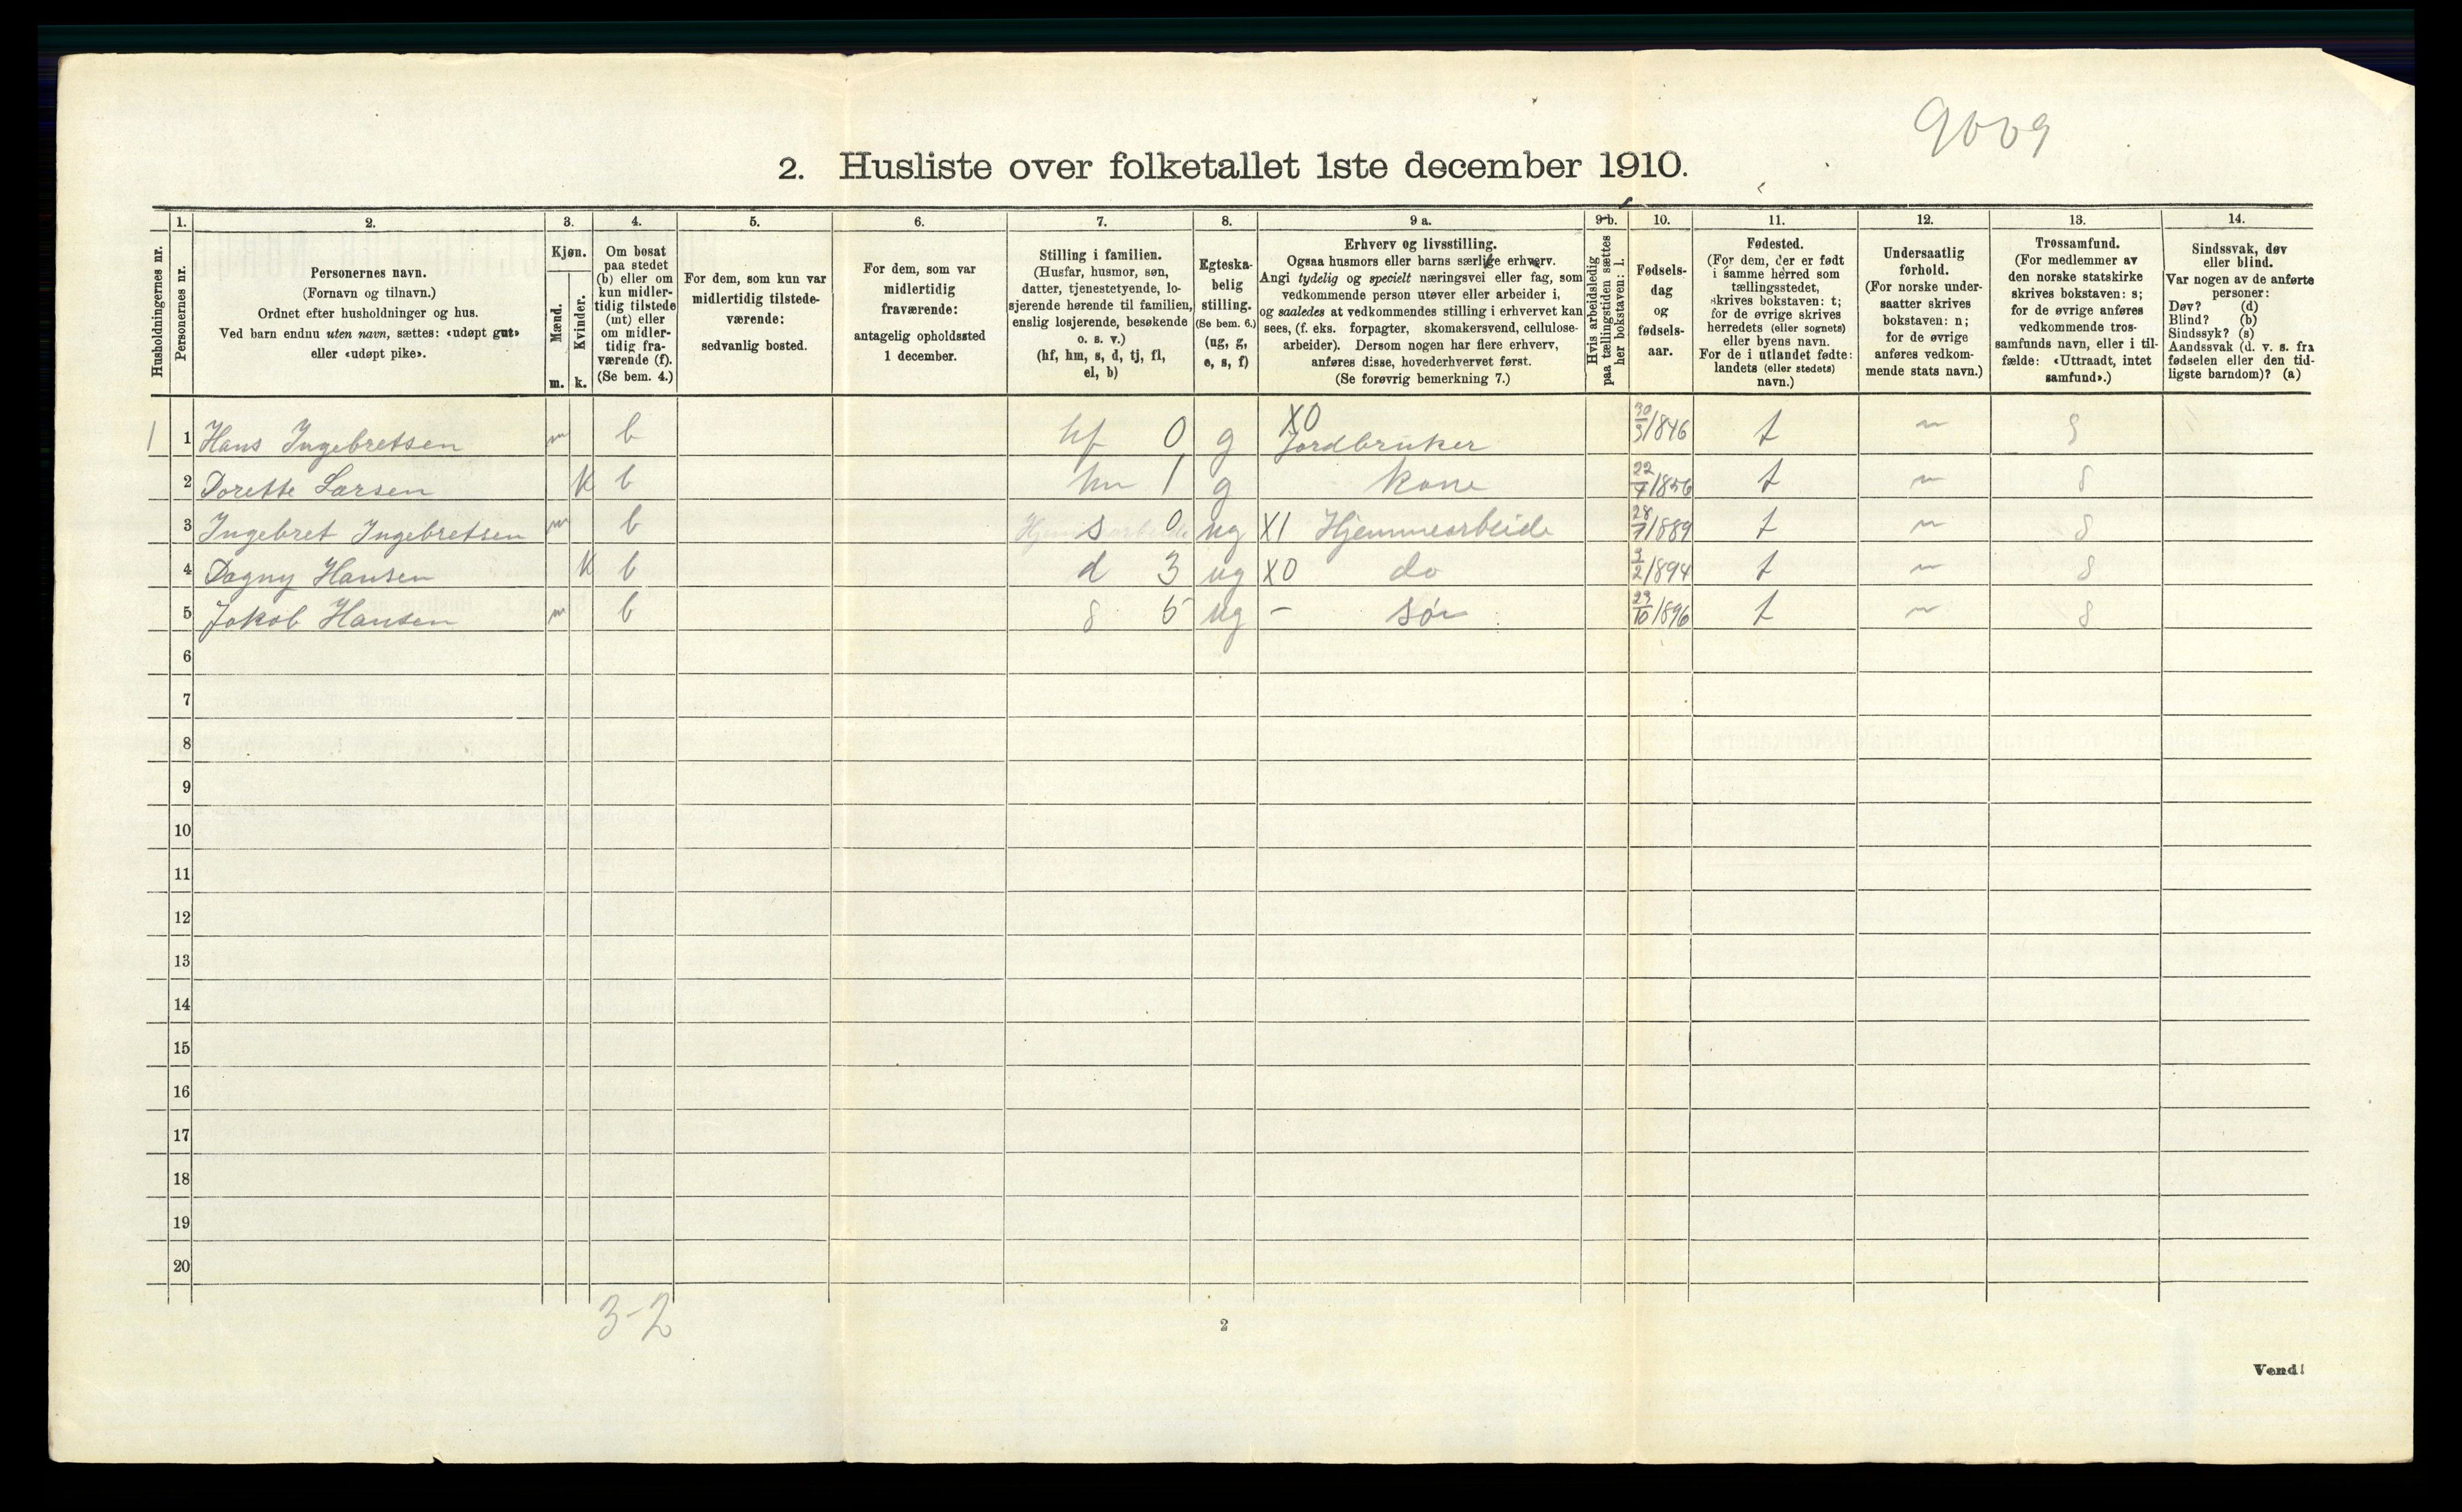 9009
2. Husliste over folketallet 1ste december 1910.
Husholdningernes nr.
1.
Personernes nr.
2.
Personernes navn.
(Fornavn og tilnavn.)
Ordnet efter husholdninger og hus.
Ved barn endnu uten navn, sættes: «udøpt gut»
eller «udøpt pike».
3.
Kjøn.
Mænd.
Kvinder.
m. k.
4.
Om bosat
paa stedet
(b) eller om
kun midler-
tidig tilstede
(mt) eller
om midler-
tidig fra-
værende (f).
(Se bem. 4.)
5.
For dem, som kun var
midlertidig tilstede-
værende:
sedvanlig bosted.
6.
For dem, som var
midlertidig
fraværende:
antagelig opholdssted
1 december.
7.
Stilling i familien.
(Husfar, husmor, søn,
datter, tjenestetyende, lo-
sjerende hørende til familien,
enslig losjerende, besøkende
o. s. v.)
(hf, hm, s, d, tj, fl,
el, b)
8.
Egteska-
belig
stilling.
(Se bem. 6.)
(ug, g,
e, s, f)
9 a.
Erhverv og livsstilling.
Ogsaa husmors eller barns særlige erhverv.
Angi tydelig og specielt næringsvei eller fag, som
vedkommende person utøver eller arbeider i,
og saaledes at vedkommendes stilling i erhvervet kan
sees, (f. eks. forpagter, skomakersvend, cellulose-
arbeider). Dersom nogen har flere erhverv,
anføres disse, hovederhvervet først.
(Se forøvrig bemerkning 7.)
9 b.
Hvis arbeidsledig
paa tællingstiden sættes
her bokstaven: l.
10.
Fødsels-
dag
og
fødsels-
aar.
11.
Fødested.
(For dem, der er født
i samme herred som
tællingsstedet,
skrives bokstaven: t;
for de øvrige skrives
herredets (eller sognets)
eller byens navn.
For de i utlandet fødte:
landets (eller stedets)
navn.)
12.
Undersaatlig
forhold.
(For norske under-
saatter skrives
bokstaven: n;
for de øvrige
anføres vedkom-
mende stats navn.)
13.
Trossamfund.
(For medlemmer av
den norske statskirke
skrives bokstaven: s;
for de øvrige anføres
vedkommende tros-
samfunds navn, eller i til-
fælde: «Uttraadt, intet
samfund».)
14.
Sindssvak, døv
eller blind.
Var nogen av de anførte
personer:
Døv? (d)
Blind? (b)
Sindssyk? (s)
Aandssvak (d. v. s. fra
fødselen eller den tid-
ligste barndom)? (a)
1 1 Hans Ingebretsen m b hf 0 g X0 Jordbruker 30/3/1846 t n s
2 Dorette Larsen k b hm 1 g kone 22/7/1856 t n s
3 Ingebret Ingebretsen m b s 0 ug X1 Hjemmearbeide 28/7/1889 t n s
4 Dagny Hansen k b d 3 ug X0 do 2/1894 t n s
5 Jakob Hansen m b s 5 ug - søn 29/10/1896 t n s
6
7
8
9
10
11
12
13
14
15
16
17
18
19
20
3-2
2
Vend!